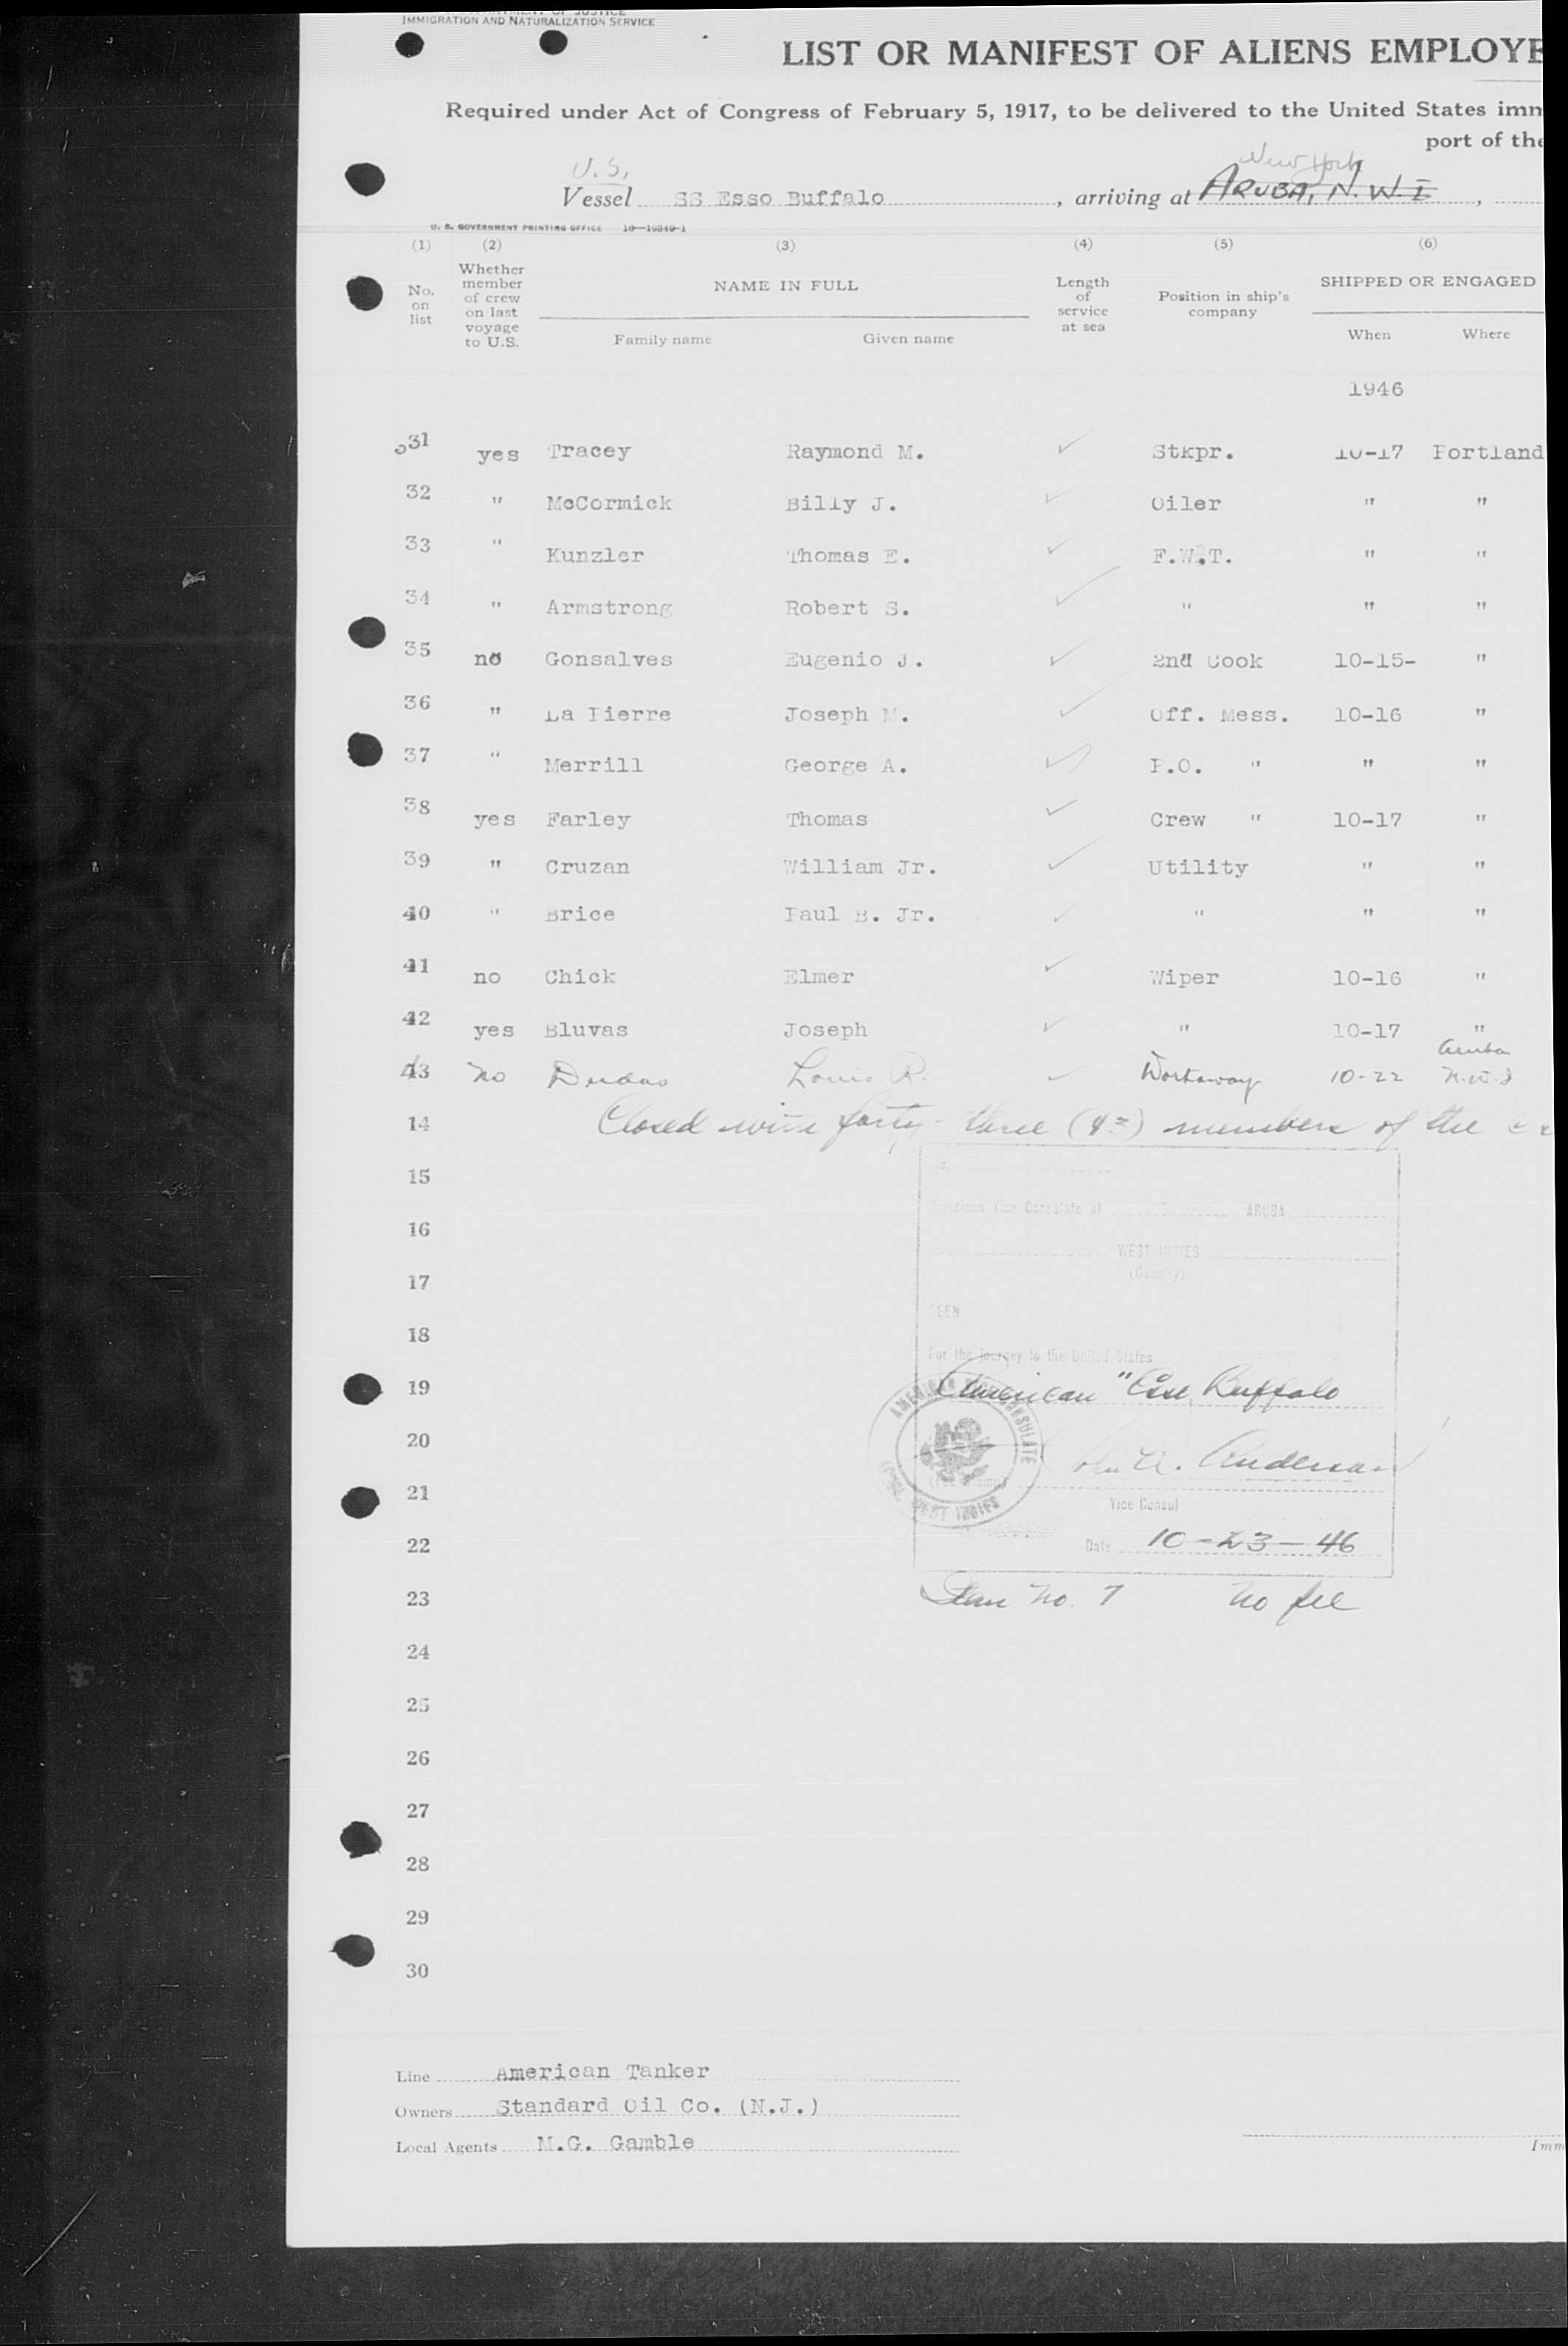 IMMIGRATION AND NATURALIZATION SERVICE
LIST OR MANIFEST OF ALIENS EMPLOYE
Required under Act of Congress of February 5, 1917, to be delivered to the United States imm
port of the
U.S. New York
Vessel SS Esso Buffalo, arriving at ARUBA, N.W.I,
U. S. GOVERNMENT PRINTING OFFICE 16—10349-1
(1) (2) (3) (4) (5) (6)
No. on list Whether member of crew on last voyage to U.S. NAME IN FULL Length of service at sea Position in ship's company SHIPPED OR ENGAGED
Family name Given name When Where
1946
31 yes Tracey Raymond M. ✓ Stkpr. 10-17 Portland
32 " McCormick Billy J. ✓ Oiler " "
33 " Kunzler Thomas E. ✓ F.W.T. " "
34 " Armstrong Robert S. ✓ " " "
35 no Gonsalves Eugenio J. ✓ 2nd Cook 10-15- "
36 " La Pierre Joseph M. ✓ Off. Mess. 10-16 "
37 " Merrill George A. ✓ P.O. " " "
38 yes Farley Thomas ✓ Crew " 10-17 "
39 " Cruzan William Jr. ✓ Utility " "
40 " Brice Paul B. Jr. ✓ " " "
41 no Chick Elmer ✓ Wiper 10-16 "
42 yes Bluvas Joseph ✓ " 10-17 "
43 no Dudas Louis R. ✓ Workaway 10-22 Aruba N.W.I
14 Closed with forty-three (43) members of the
15 No.
American Vice Consulate at ARUBA
16
WEST INDIES
17 (Country)
18 SEEN
For the journey to the United States
19 American "Esso Buffalo
AMERICAN CONSULATE
WEST INDIES
20 John A. Anderson
21 Vice Consul
22 Date 10-23-46
23 Item No. 7 No fee
24
25
26
27
28
29
30
Line American Tanker
Owners Standard Oil Co. (N.J.)
Local Agents M.G. Gamble
Imm